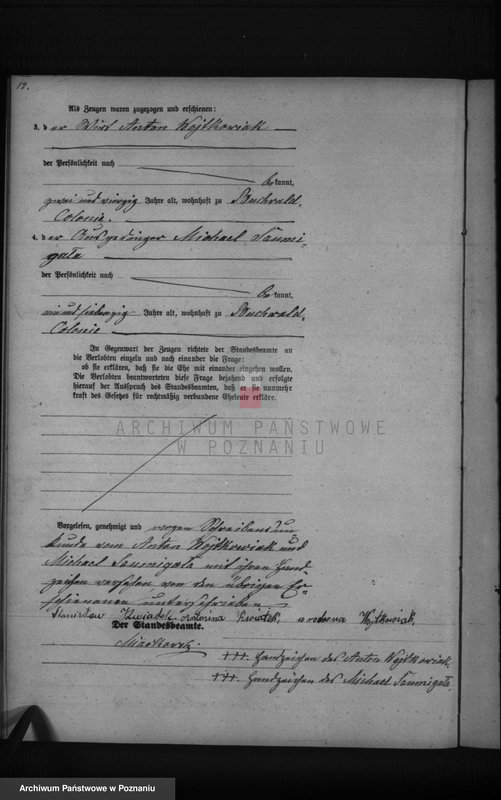 14.
Als Zeugen waren zugezogen und erschienen:
3. der Wirt Anton Wojtkowiak
der Persönlichkeit nach
be kannt,
zwei und vierzig Jahre alt, wohnhaft zu Buchwald-
Colonie.
4. der Ausgedinger Michael Saumi-
gała
der Persönlichkeit nach
be kannt,
ein und siebenzig Jahre alt, wohnhaft zu Buchwald-
Colonie
In Gegenwart der Zeugen richtete der Standesbeamte an
die Verlobten einzeln und nach einander die Frage:
ob sie erklären, daß sie die Ehe mit einander eingehen wollen.
Die Verlobten beantworteten diese Frage bejahend und erfolgte
hierauf der Ausspruch des Standesbeamten, daß er sie nunmehr
kraft des Gesetzes für rechtmäßig verbundene Eheleute erkläre.
ARCHIWUM PAŃSTWOWE
W POZNANIU
Vorgelesen, genehmigt und wegen Schreibensun-
kunde vom Anton Wojtkowiak und
Michael Saumigała mit ihren Hand-
zeichen versehen von den übrigen Er-
schienenen unterschrieben
Stanisław Kwiatek. Kwiatek, urodzona Wojtkowiak,
Der Standesbeamte.
+++. Handzeichen des Anton Wojtkowiak.
+++. Handzeichen des Michael Saumigała.
Archiwum Państwowe w Poznaniu